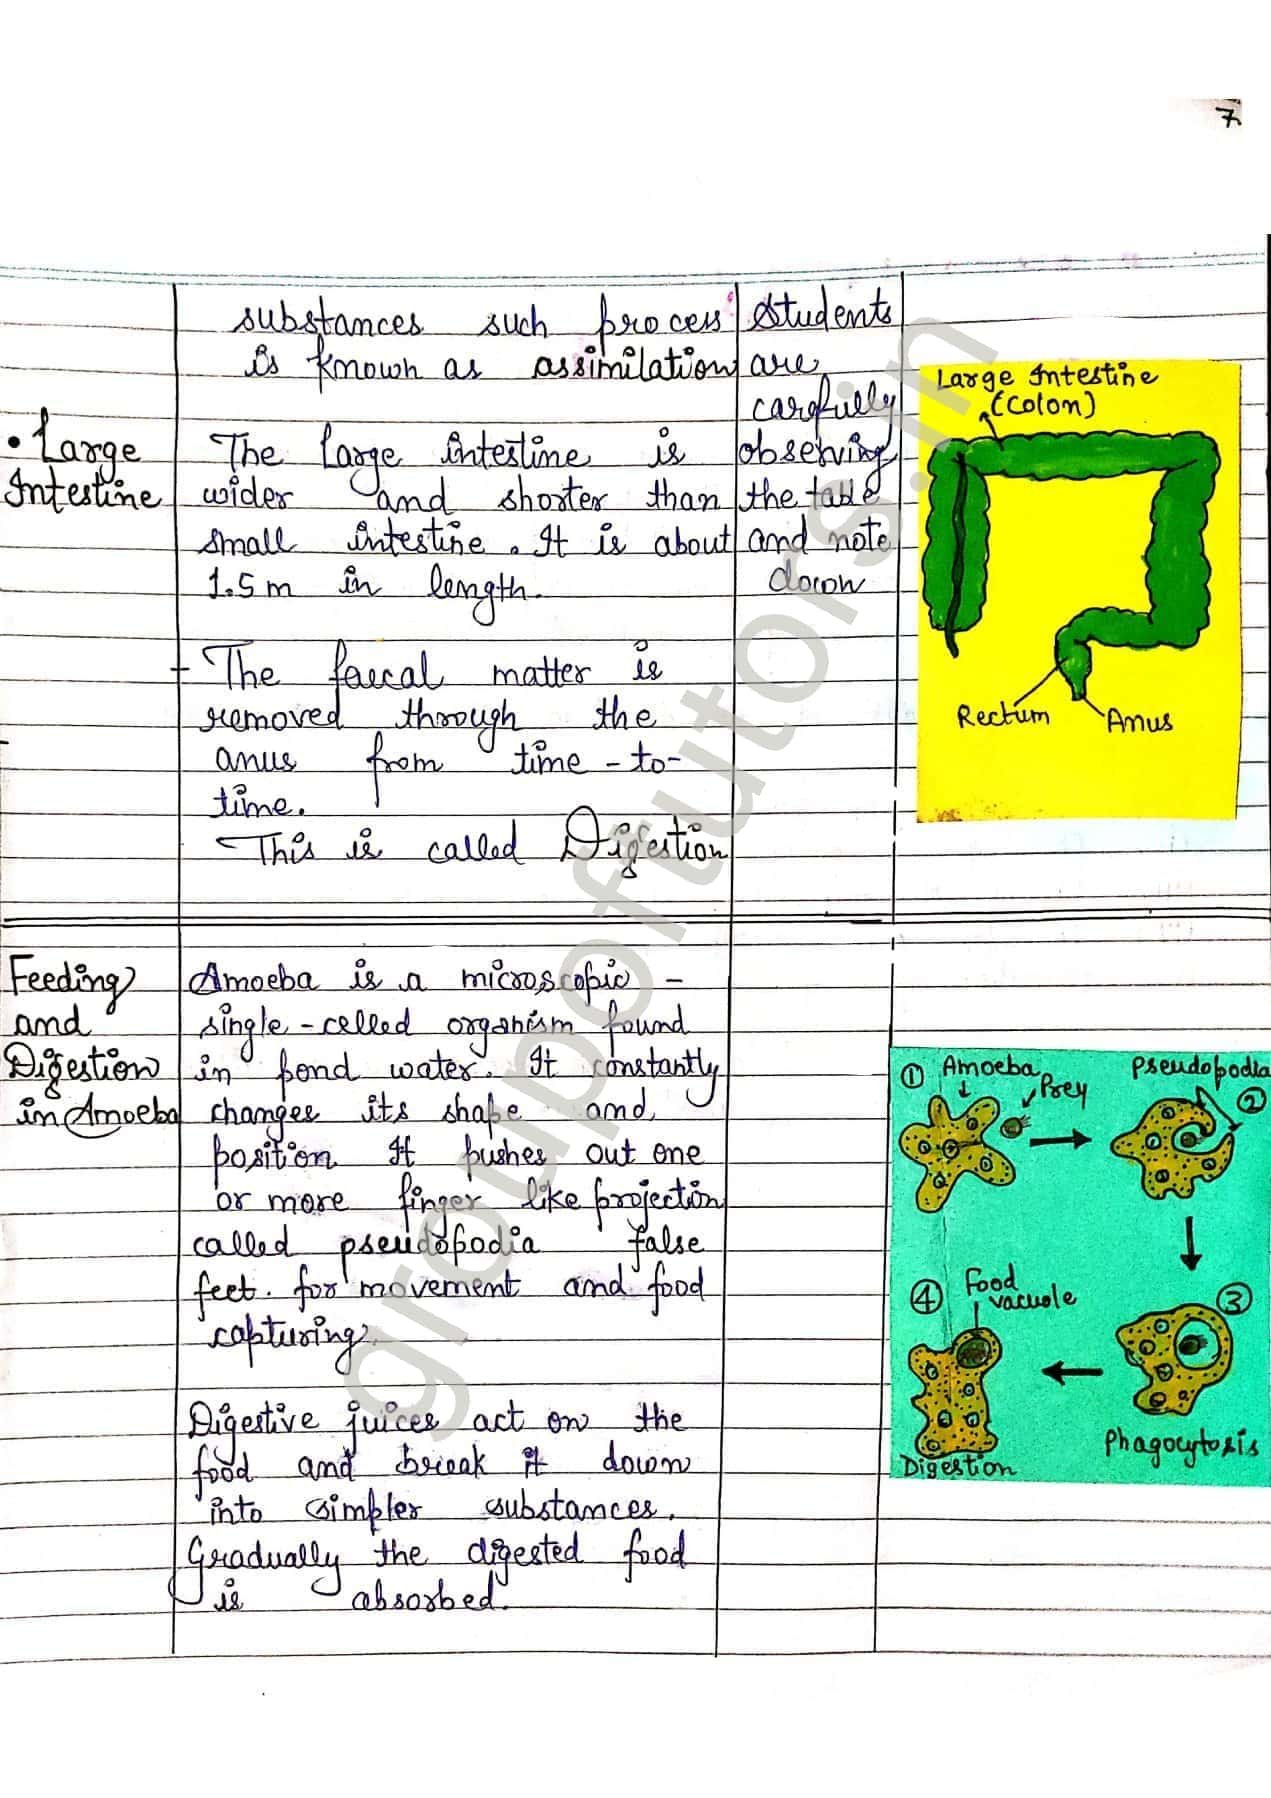 7.
substances such process
is known as assimilation
• Large
Intestine
The Large intestine is
wider and shorter than
small intestine. It is about
1.5m in length.
- The faecal matter is
removed through the
anus from time-to-
time.
This is called Digestion
Students
are
carefully
observing
the table
and note
down
Large Intestine
(Colon)
Rectum
Anus
Feeding
and
Digestion
in Amoeba
Amoeba is a microscopic -
single-celled organism found
in pond water. It constantly
changes its shape and
position It pushes out one
or more finger like projection
called pseudopodia false
feet. for movement and food
capturing.
Digestive juices act on the
food and break it down
into simpler substances.
Gradually the digested food
is absorbed.
① Amoeba
Prey
Pseudopodia
②
③
Phagocytosis
④ Food
vacuole
Digestion
groupoftutors.in